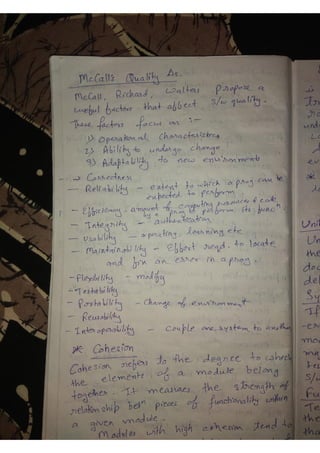 McCall's Quality
McCall, Richard, Walters Propose a
useful factors that affect S/w quality.
These factors focus on :-
1) Operational Characteristics
2) Ability to undergo change
3) Adaptability to new environment
- Correctness
- Reliability - extent to which a prog can be
expected to perform
- Efficiency - amount of computing resources & code
by a prog to perform its func^n
- Integrity - authentication
- Usability - operating, learning etc
- Maintainability - Effort reqd. to locate
and fix an error in a prog.
- Flexibility - modify
- Testability
- Portability - change of environment
- Reusability
- Interoperability - couple one system to another
* Cohesion
Cohesion refers to the degree to which
the elements of a module belong
together. It measures the strength of
relationship bet^n pieces of functionality within
a given module.
Modules with high cohesion tend to